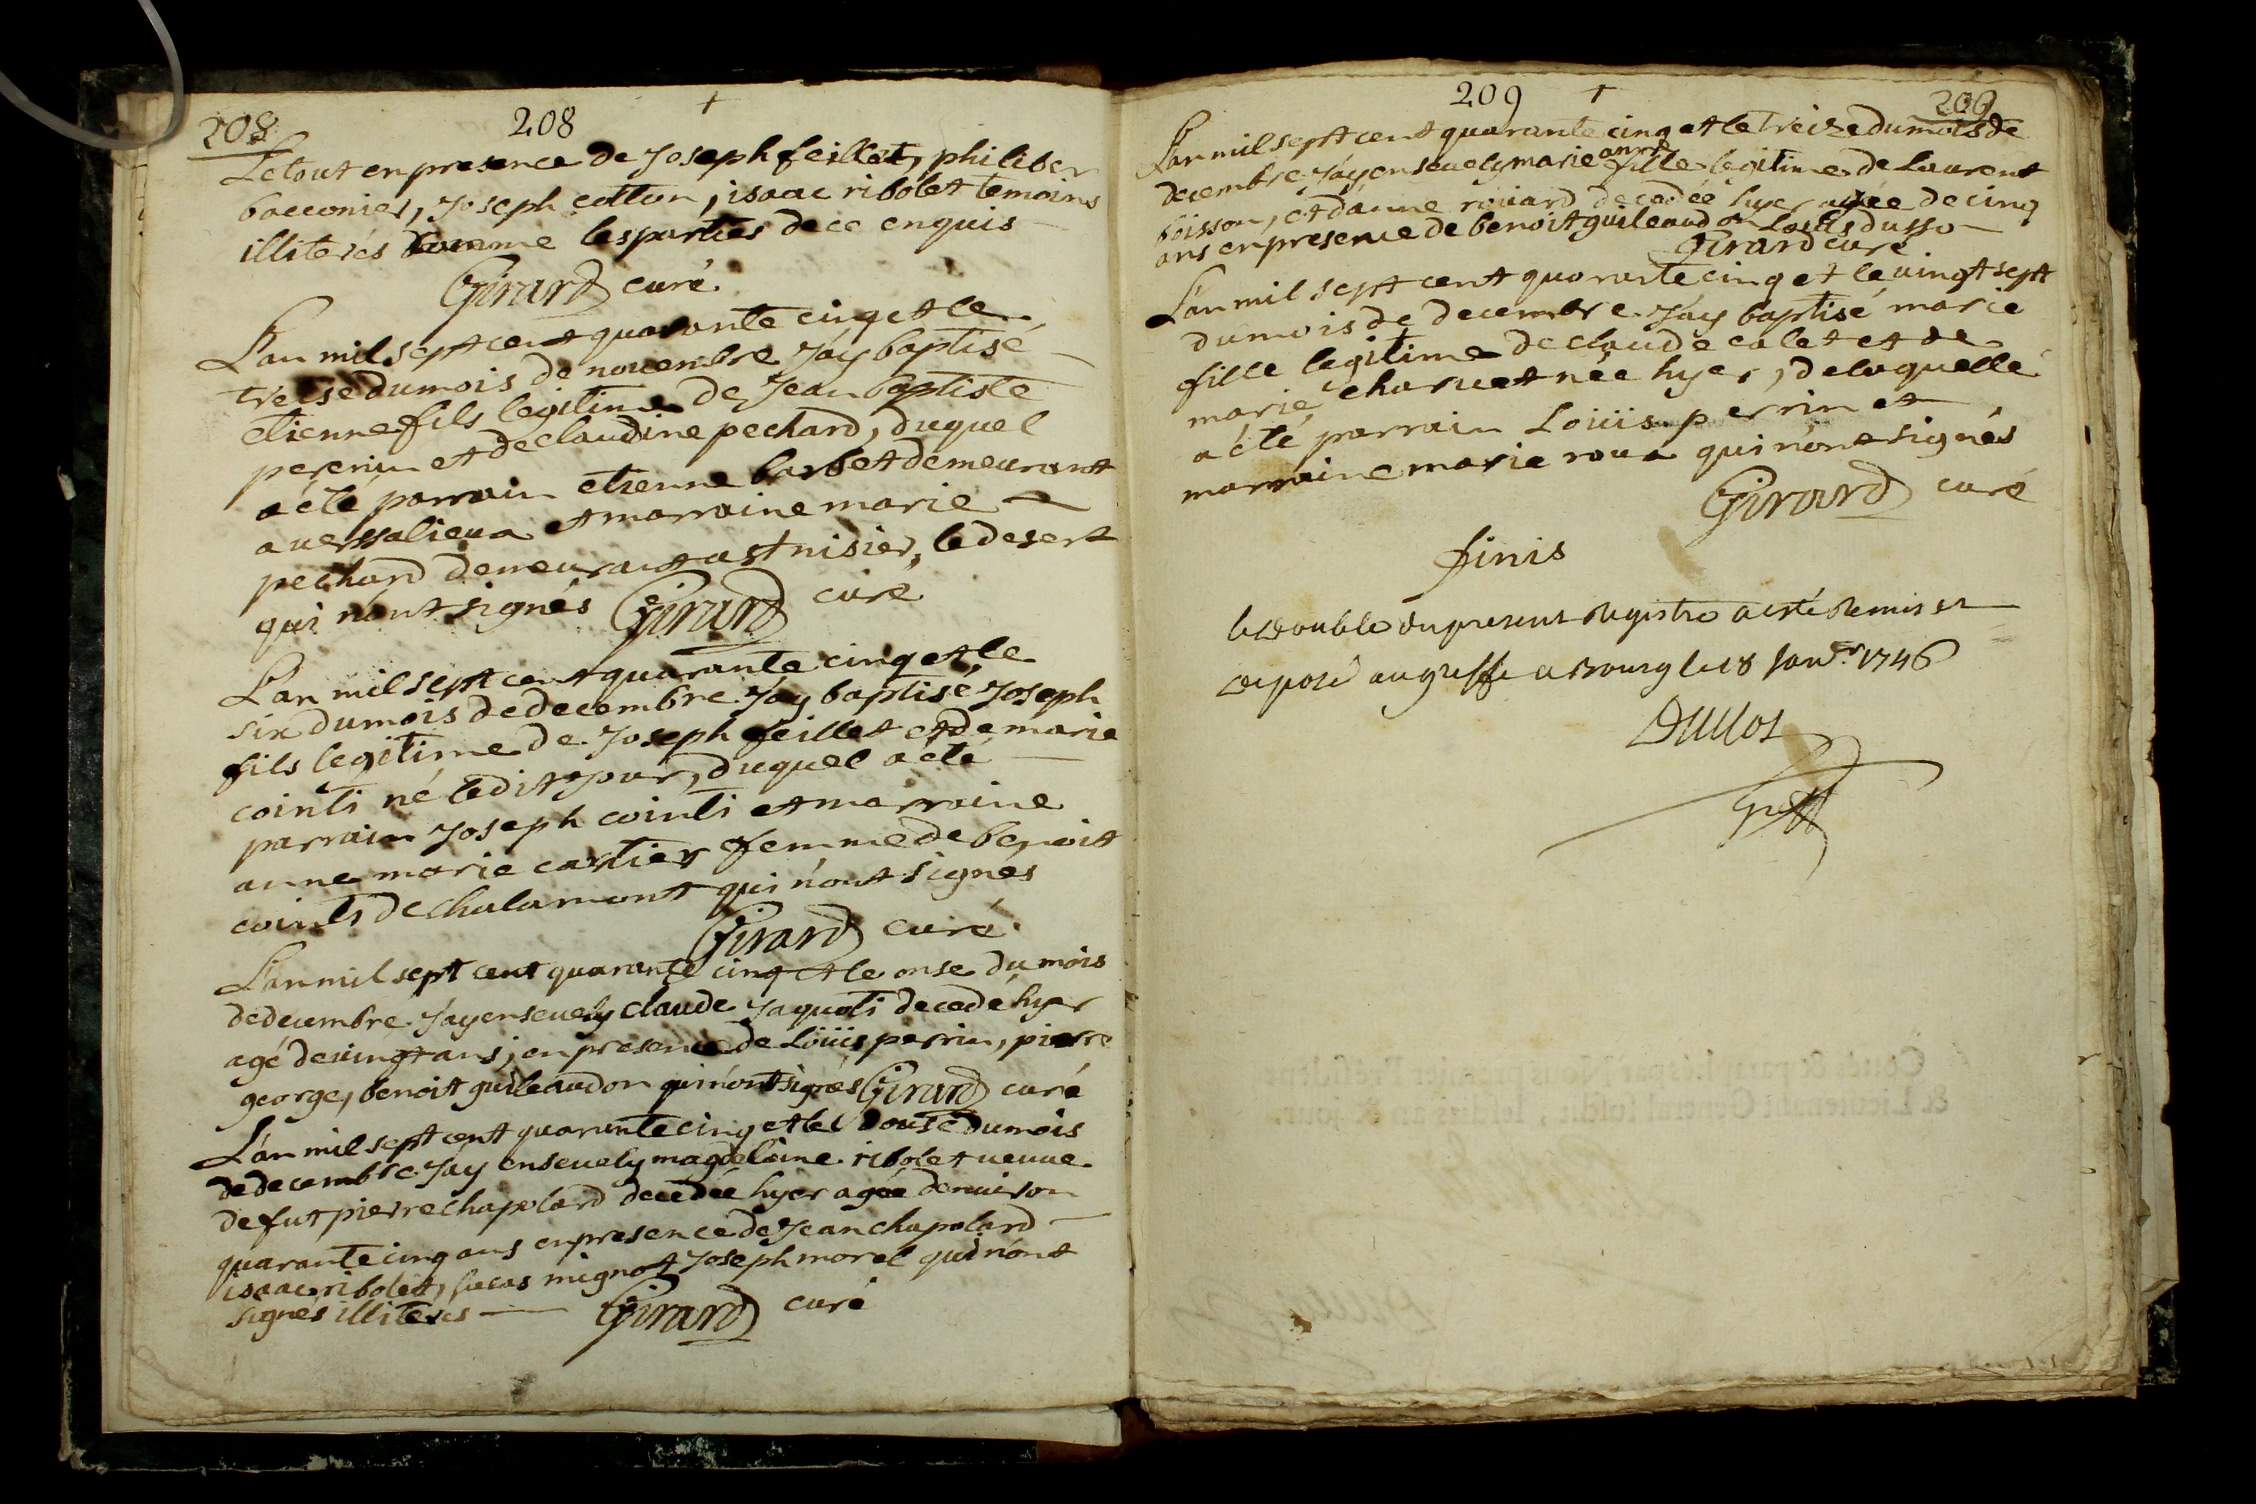 208
208
Le tout en presence de Joseph feillet, philiber
bacconier, Joseph cotton, isaac ribolet temoins
illiterés comme les parties de ce enquis
Girard curé
L'an mil sept cent quarante cinq et le
treise du mois de novembre J'ay baptisé
etienne fils legitime de Jean baptiste
pererin et de claudine pechard, duquel
a été parrain etienne barbet demeurant
a verssalieux et marraine marie
pechard demeurant a st nisier, le desert
qui n'ont signés Girard curé
L'an mil sept cent quarante cinq et le
six du mois de decembre J'ay baptisé Joseph
fils legitime de Joseph feillet et de marie
cointi né ledit jour, duquel a été
parrain Joseph cointi et marraine
anne marie cartier femme de benoit
cointi de chalamont qui n'ont signés
Girard curé
L'an mil sept cent quarante cinq et le onse du mois
de decembre J'ay ensevely claude Jaquoti decedé hyer
agé de vingt ans, en presence de Loüis perrin, pierre
george, benoit guileaudon qui n'ont signés Girard curé
L'an mil sept cent quarante cinq et le douse du mois
de decembre J'ay ensevely magdelaine ribolet veuve
de fut pierre chapolard decedée hyer agée denviron
quarante cinq ans en presence de Jean chapolard
isaac ribolet, lucas mignot Joseph morel qui n'ont
signés illiterés Girard curé
209
209
L'an mil sept cent quarante cinq et le treize du mois de
decembre J'ay ensevely marie anne fille legitime de Laurent
boisson, et d'anne rouard decedée hyer agée de cinq
ans en presence de benoit guileaudon Loüis dusso
Girard curé
L'an mil sept cent quarante cinq et le vingt sept
du mois de decembre J'ay baptisé marie
fille legitime de claude calet et de
marie charvet née hyer, de laquelle
a été parrain Loüis perrin et
marraine marie roux qui n'ont signés
Girard curé
finis
le double du present Registre a esté Remis et
deposé au greffe a Bourg le 18 Janv.er 1746
Duclos
Greff